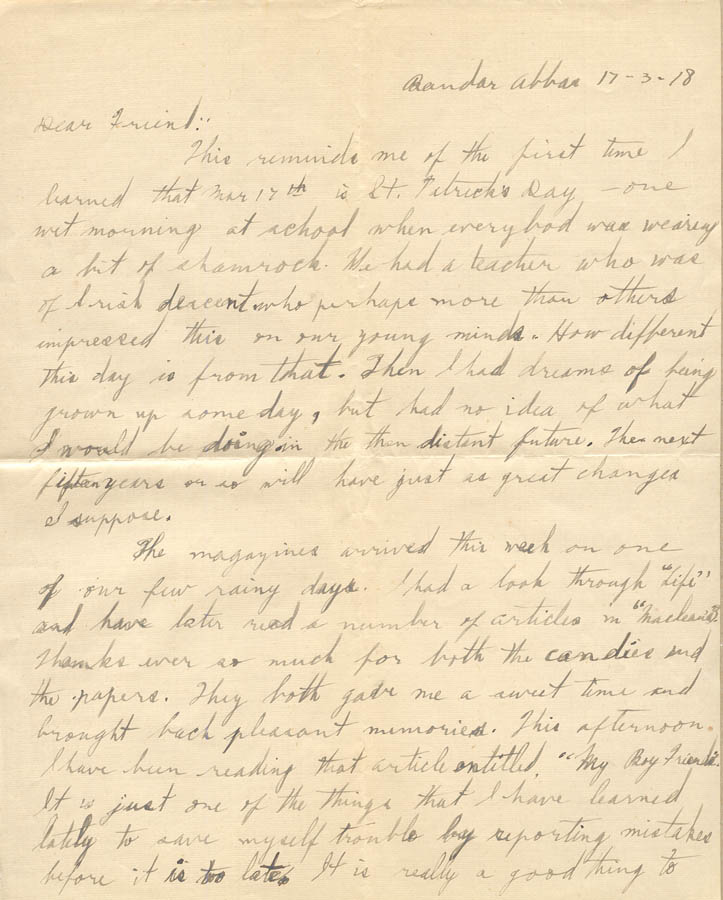 Bandar Abbas 17-3-18
Dear Friend:
This reminds me of the first time I
learned that Mar 17th is St. Patrick's Day - one
wet mourning at school when everybod was wearing
a bit of shamrock. We had a teacher who was
of Irish descent who perhaps more than others
impressed this on our young minds. How different
this day is from that. Then I had dreams of being
grown up some day, but had no idea of what
I would be doing in the then distant future. The next
fifteen years or so will have just as great changes
I suppose.
The magazines arrived this week on one
of our few rainy days. I had a look through "Life"
and have later read a number of articles in "Maclean's".
Thanks ever so much for both the candies and
the papers. They both gave me a sweet time and
brought back pleasant memories. This afternoon
I have been reading that article entitled "My Boy Friends".
It is just one of the things that I have learned
lately to save myself trouble by reporting mistakes
before it is too late. It is really a good thing to